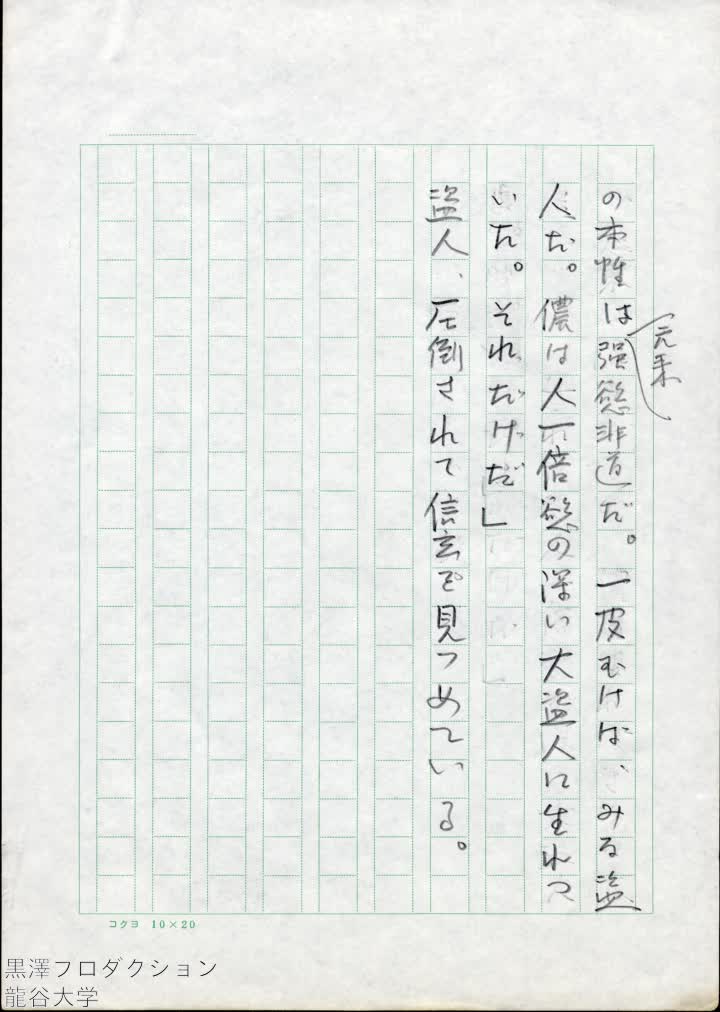 の本性は強慾非道だ。一皮むけば、みる盗
元来
人だ。儂は人一倍慾の深い大盗人に生れつ
いた。それだけだ」
盗人、圧倒されて信玄を見つめている。
コクヨ 10×20
黒澤プロダクション
龍谷大学